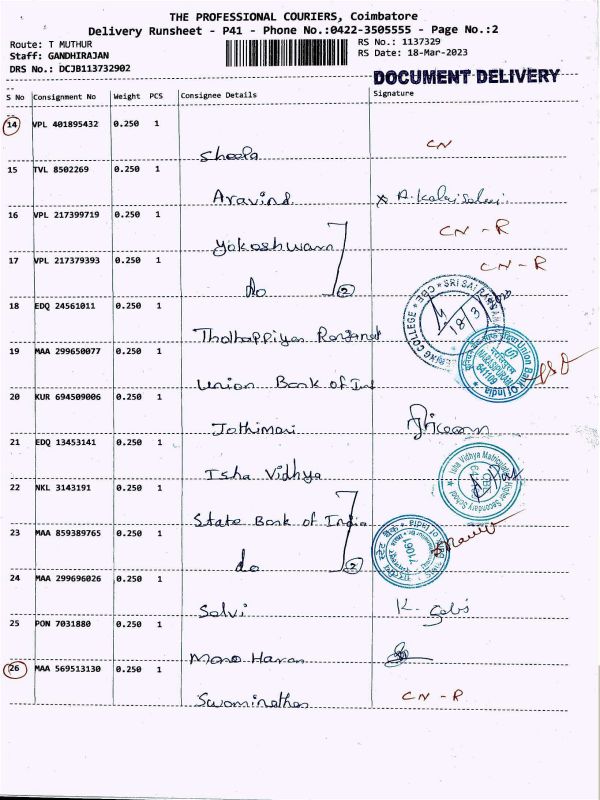 THE PROFESSIONAL COURIERS, Coimbatore
Delivery Runsheet - P41 - Phone No.:0422-3505555 - Page No.:2
Route: T MUTHUR
RS No.: 1137329
Staff: GANDHIRAJAN
RS Date: 18-Mar-2023
DRS No.: DCJB113732902
DOCUMENT DELIVERY
S No Consignment No Weight PCS Consignee Details Signature
14 VPL 401895432 0.250 1
Sheela CN
15 TVL 8502269 0.250 1
Aravind A. Kalaiselvi
16 VPL 217399719 0.250 1
CN - R
17 VPL 217379393 0.250 1
do 2 CN - R
18 EDQ 24561011 0.250 1
Tholhappiyan
SRI SAI COLLEGE CBE
18/3
19 MAA 299650077 0.250 1
Union Bank of Ind
Union Bank of India 641109
20 KUR 694509006 0.250 1
Jothimari
21 EDQ 13453141 0.250 1
Isha Vidhya
Isha Vidhya Matriculation Higher Secondary School
22 NKL 3143191 0.250 1
State Bank of India
23 MAA 859389765 0.250 1
do 2
71061
24 MAA 299696026 0.250 1
Selvi
25 PON 7031880 0.250 1
Mano Haran
26 MAA 569513130 0.250 1
Swominathan CN - R